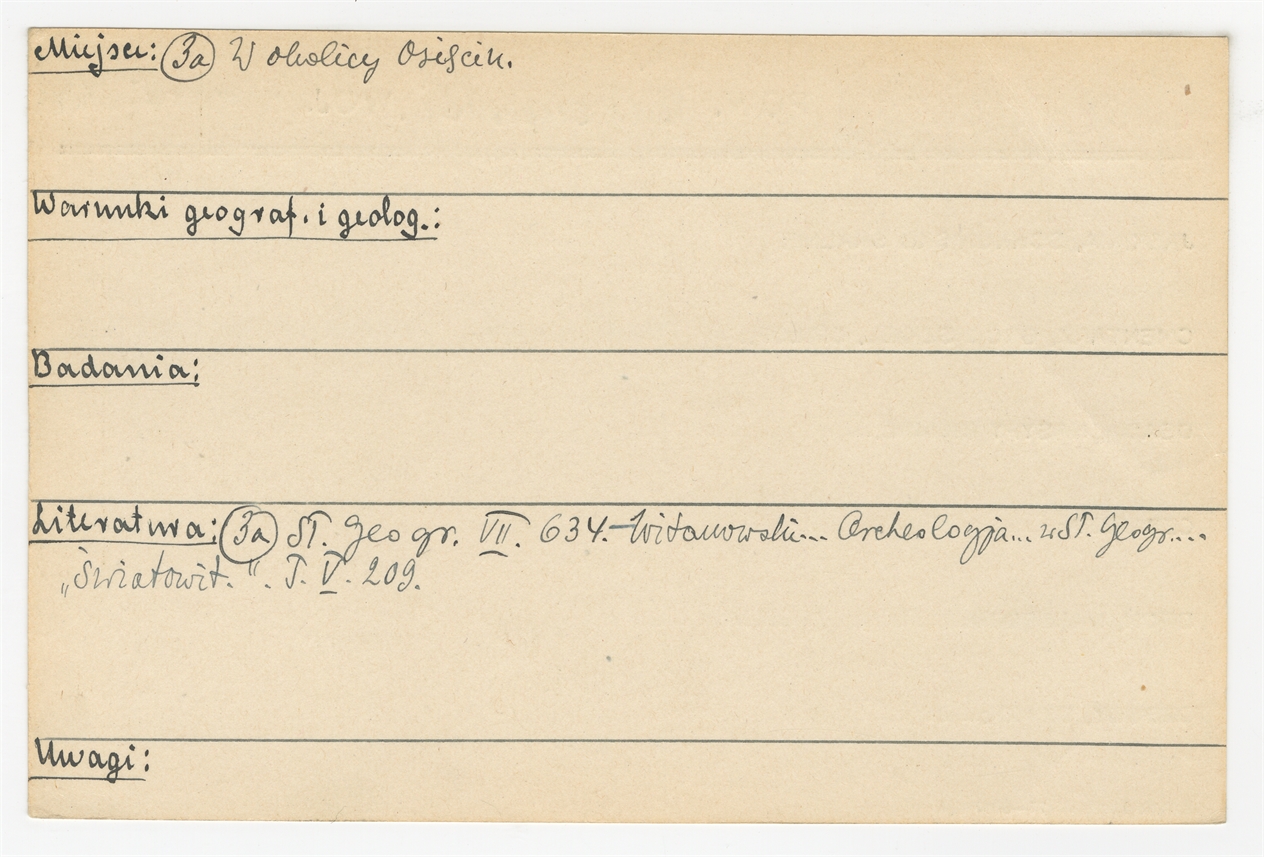 Miejsce: 3a W okolicy Osięcin.
Warunki geograf. i geolog.:
Badania:
Literatura: 3a Sł. Geogr. VII. 634.—Witanowski... Archeologja... w Sł. Geogr....
„Światowit.“. T. V. 209.
Uwagi: